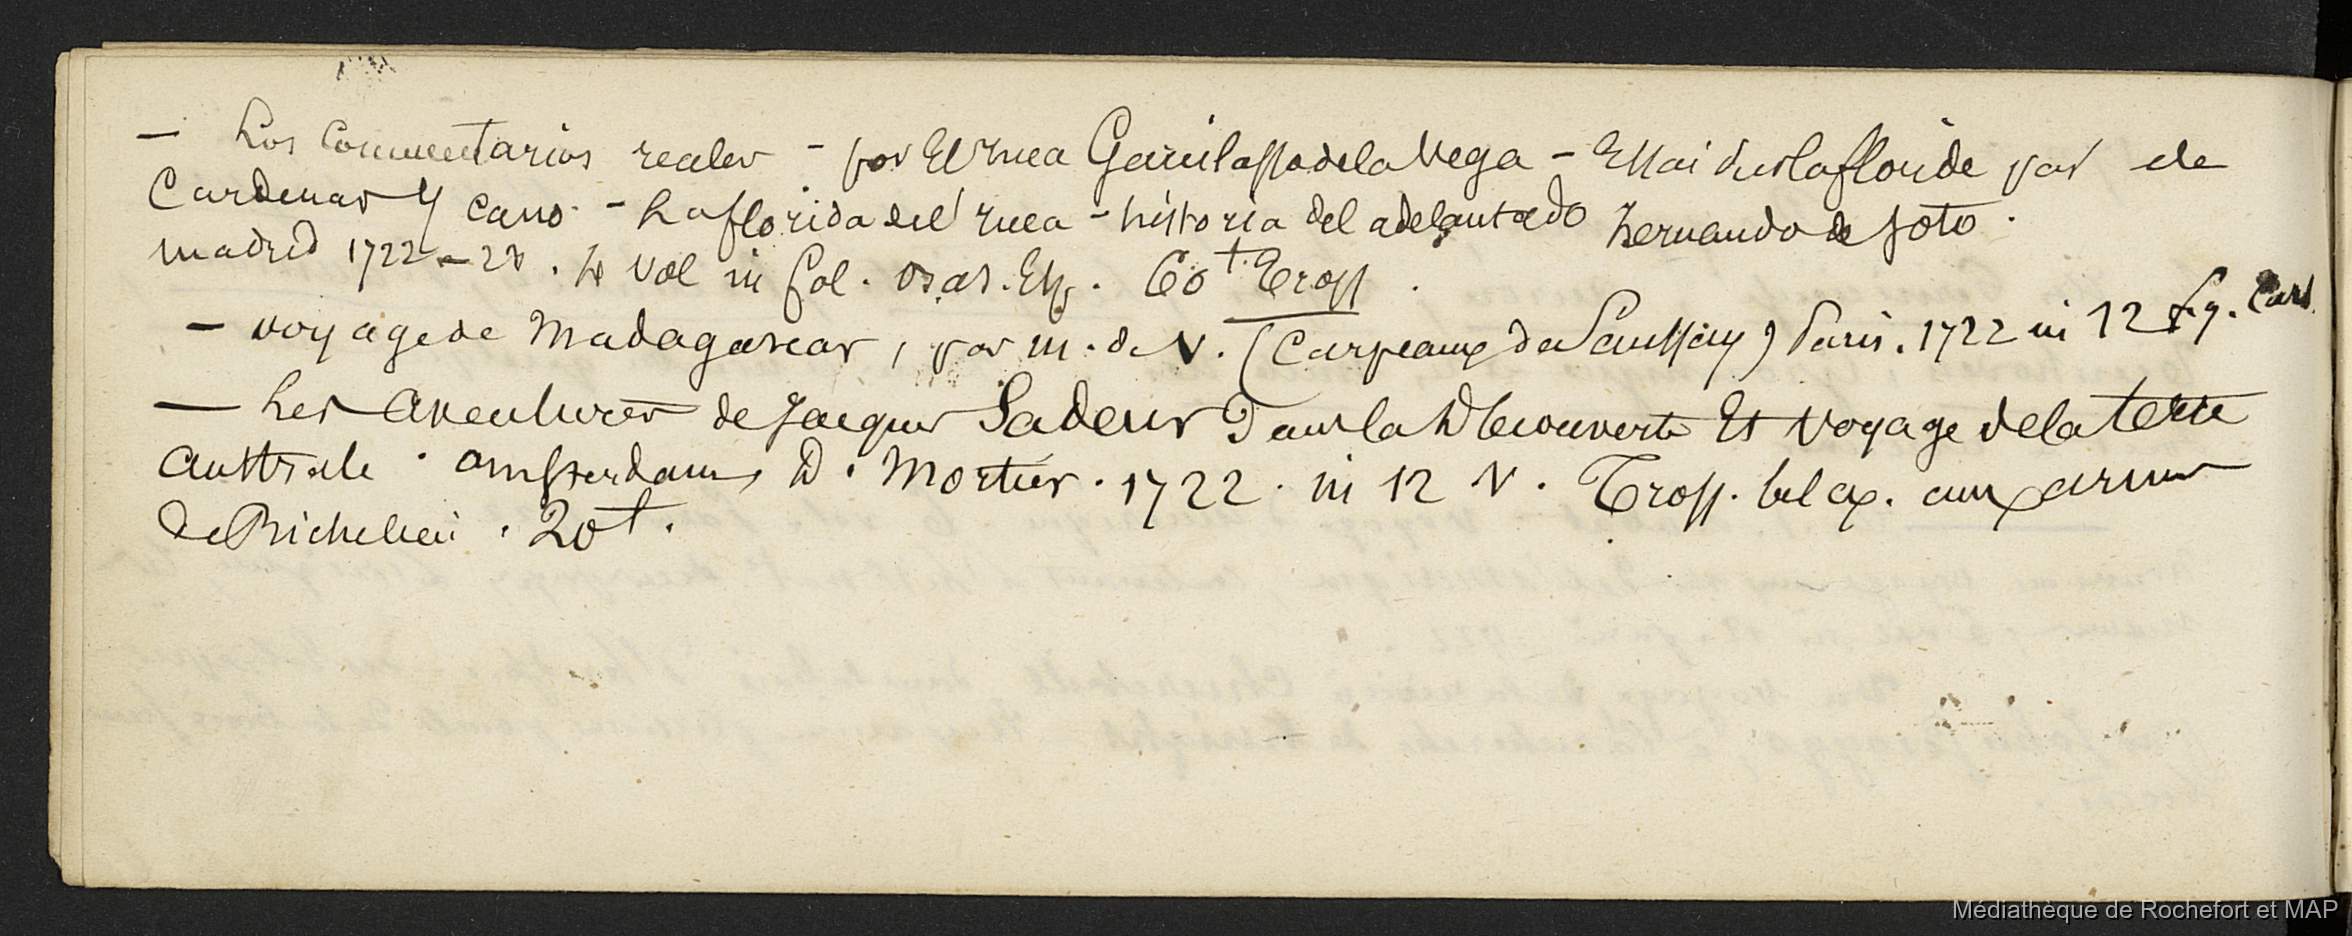 — Los Commentarios reales - por El Ynca Garcilasso de la Vega - Essai sur la floride par de
Cardenas y cano - La florida del Ynca - historia del adelantado hernando de soto .
madrid 1722 - 23 . 4 vol in fol . Esp . 60 t Tross .
— voyage de Madagascar , par m . de V . ( Carpeaux du Saussay ) Paris . 1722 in 12 fig . Cart
— Les Aventures de Jacques Sadeur Dans la Découverte Et Voyage de la terre
australe . amsterdam D . Mortier . 1722 . in 12 V . Tross . bel ex . aux armes
de Richelieu . 20 t .
Médiathèque de Rochefort et MAP